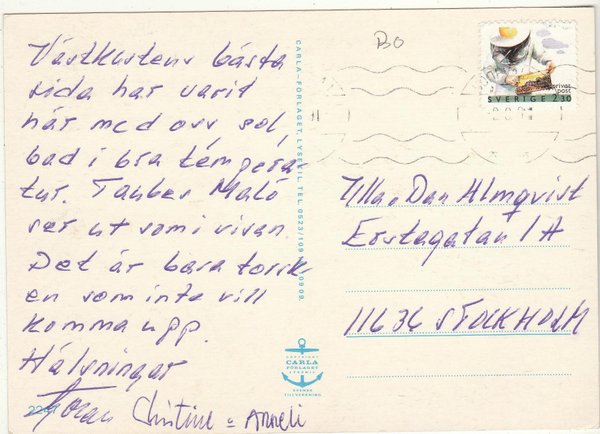 Västkustens bästa
sida har varit
här med oss sol,
bad i bra tempera-
tur. Taubes Malö
ser ut som i visan.
Det är bara torsk-
en som inte vill
komma upp.
Hälsningar
Göran Christine o Anneli
BO
privat
post
SVERIGE 2.30
Ulla o Dan Almqvist
Erstagatan 1A
11636 STOCKHOLM
CARLA-FÖRLAGET, LYSEKIL TEL. 0523/109
COPYRIGHT
CARLA
FÖRLAGET
LYSEKIL
SVENSK
TILLVERKNING